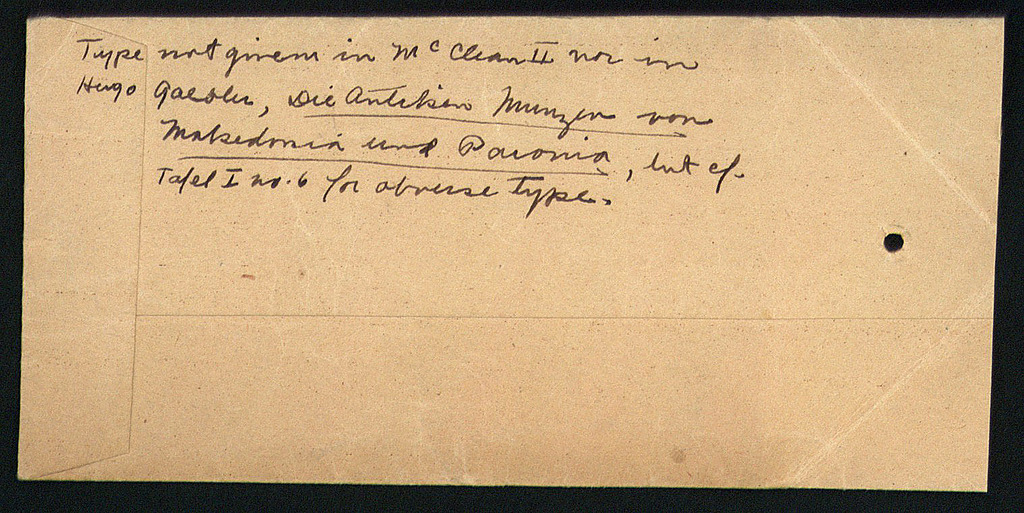 Type not given in McClean II nor in
Hugo Gaebler, Die Antiken Munzen von
Makedonia und Paionia, but cf.
Tafel I no. 6 for obverse type.